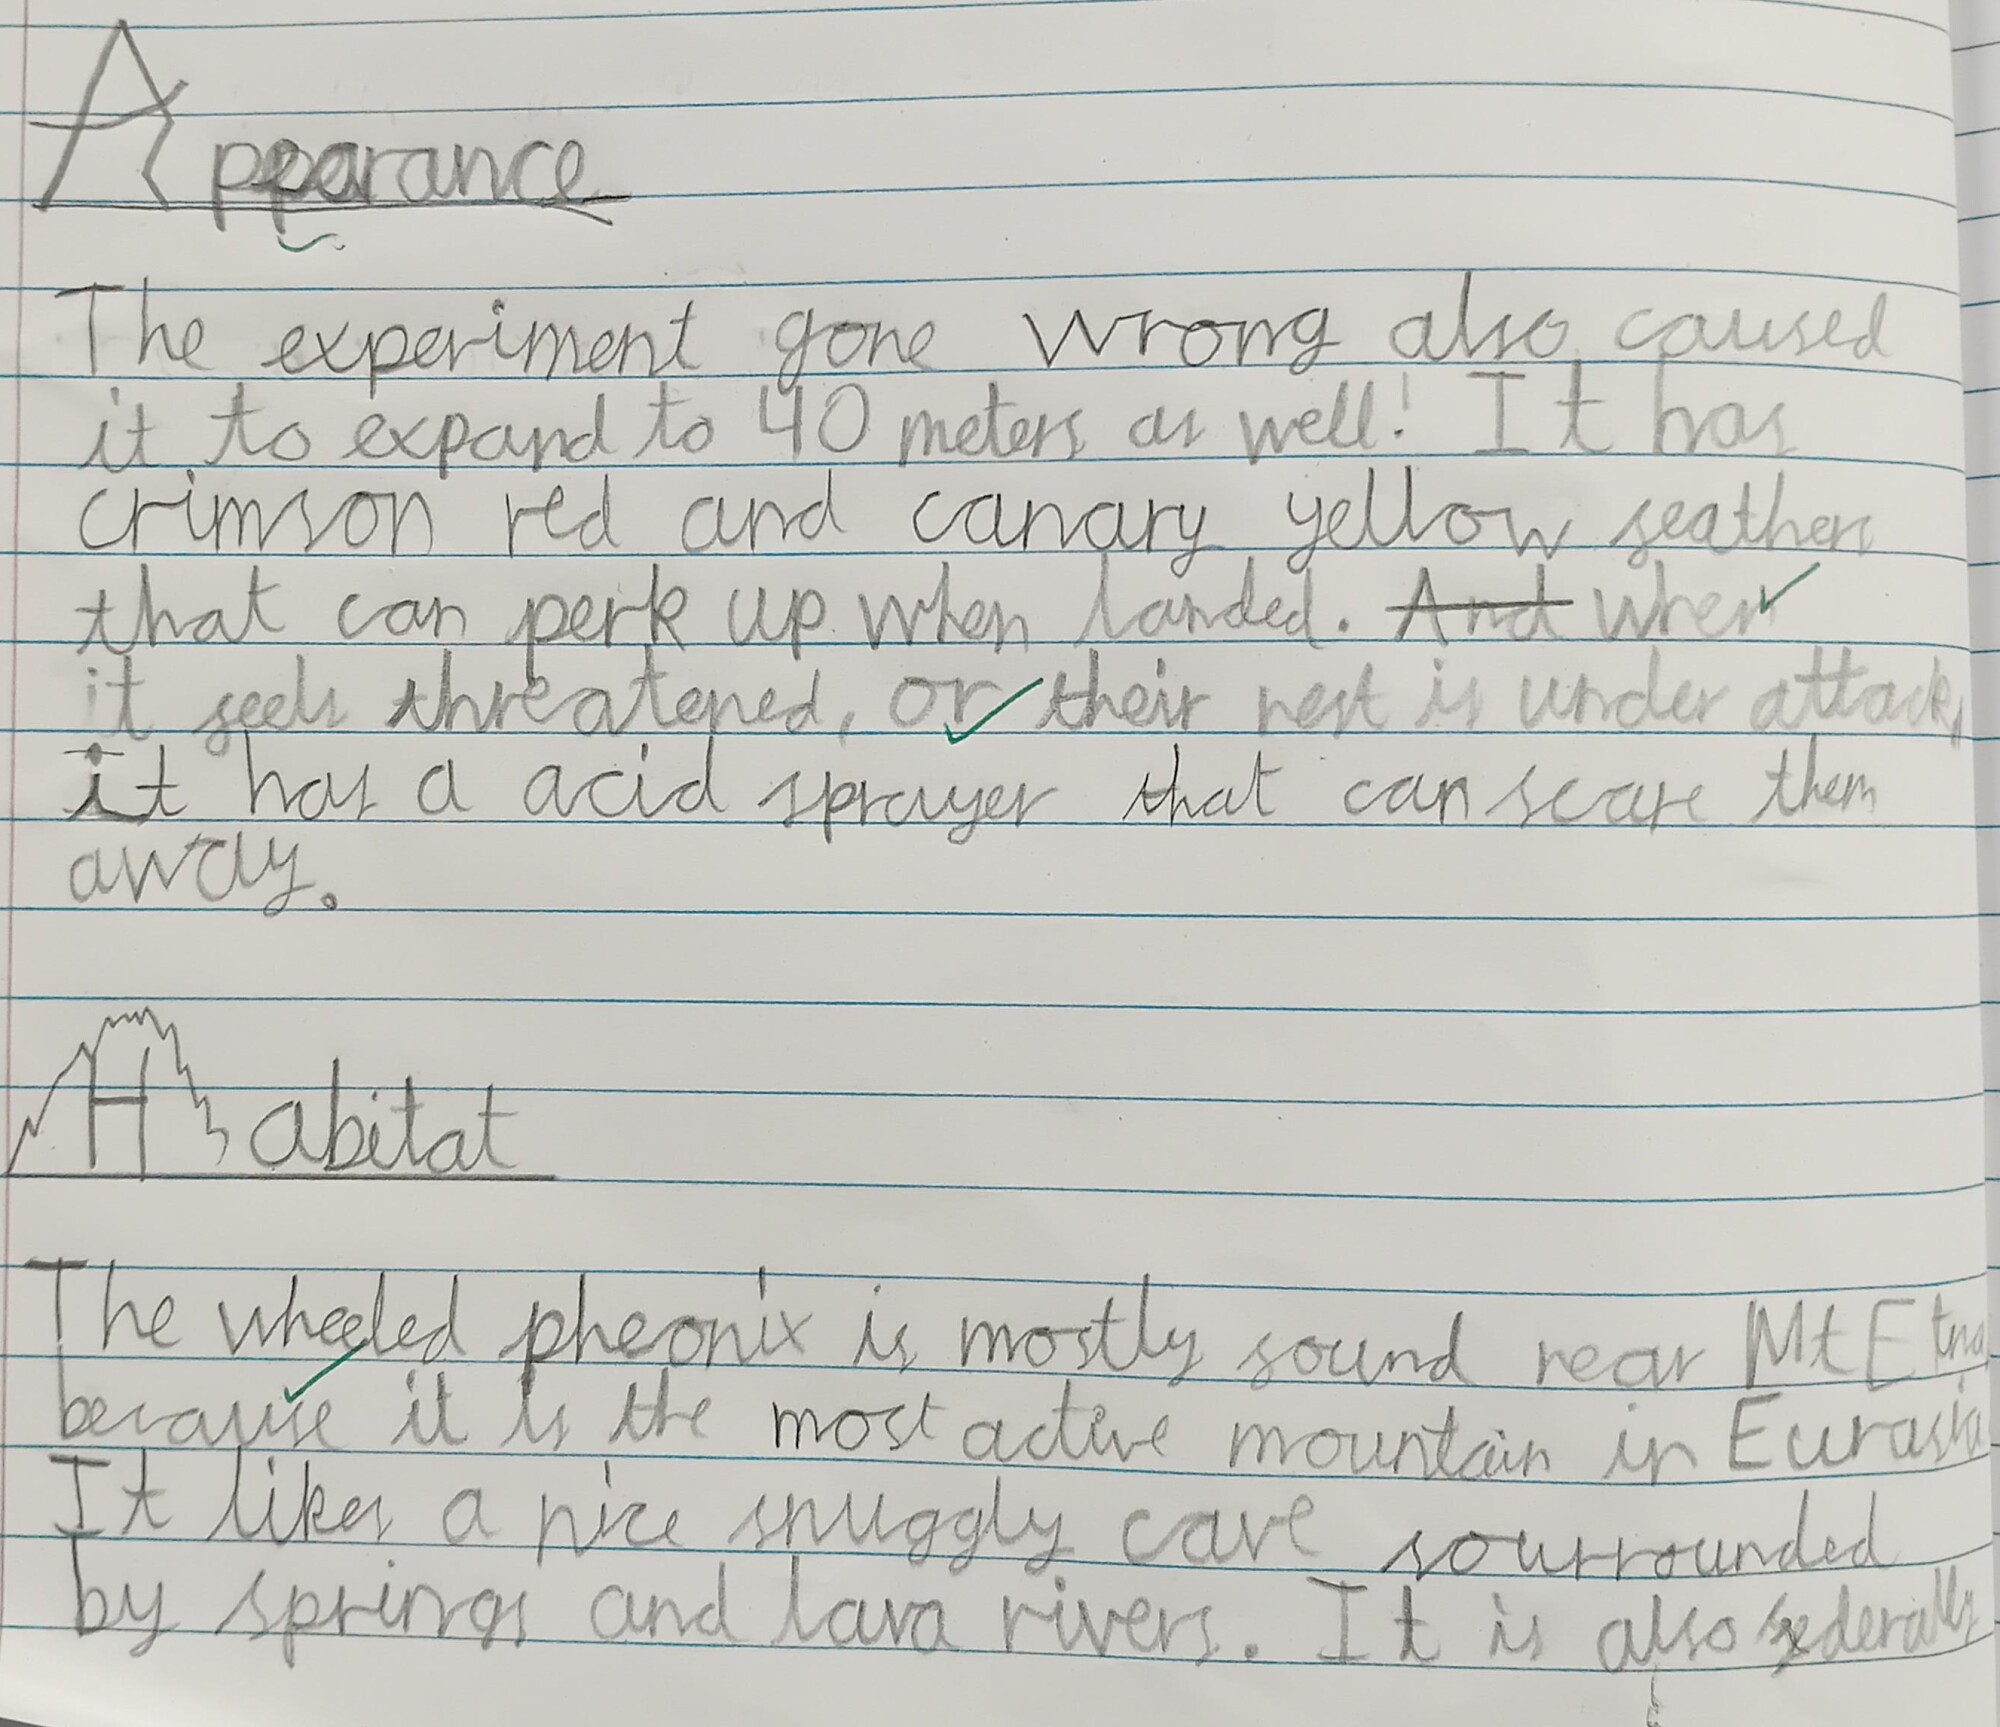 Appearance
The experiment gone wrong also caused
it to expand to 40 meters as well! It has
crimson red and canary yellow feathers
that can perk up when landed. ~~And~~ when
it feels threatened, or their nest is under attack,
it has a acid sprayer that can scare them
away.
Habitat
The wheeled pheonix is mostly found near Mt Etna
because it is the most active mountain in Eurasia
It likes a nice snuggly cave sourrounded
by springs and lava rivers. It is also federally